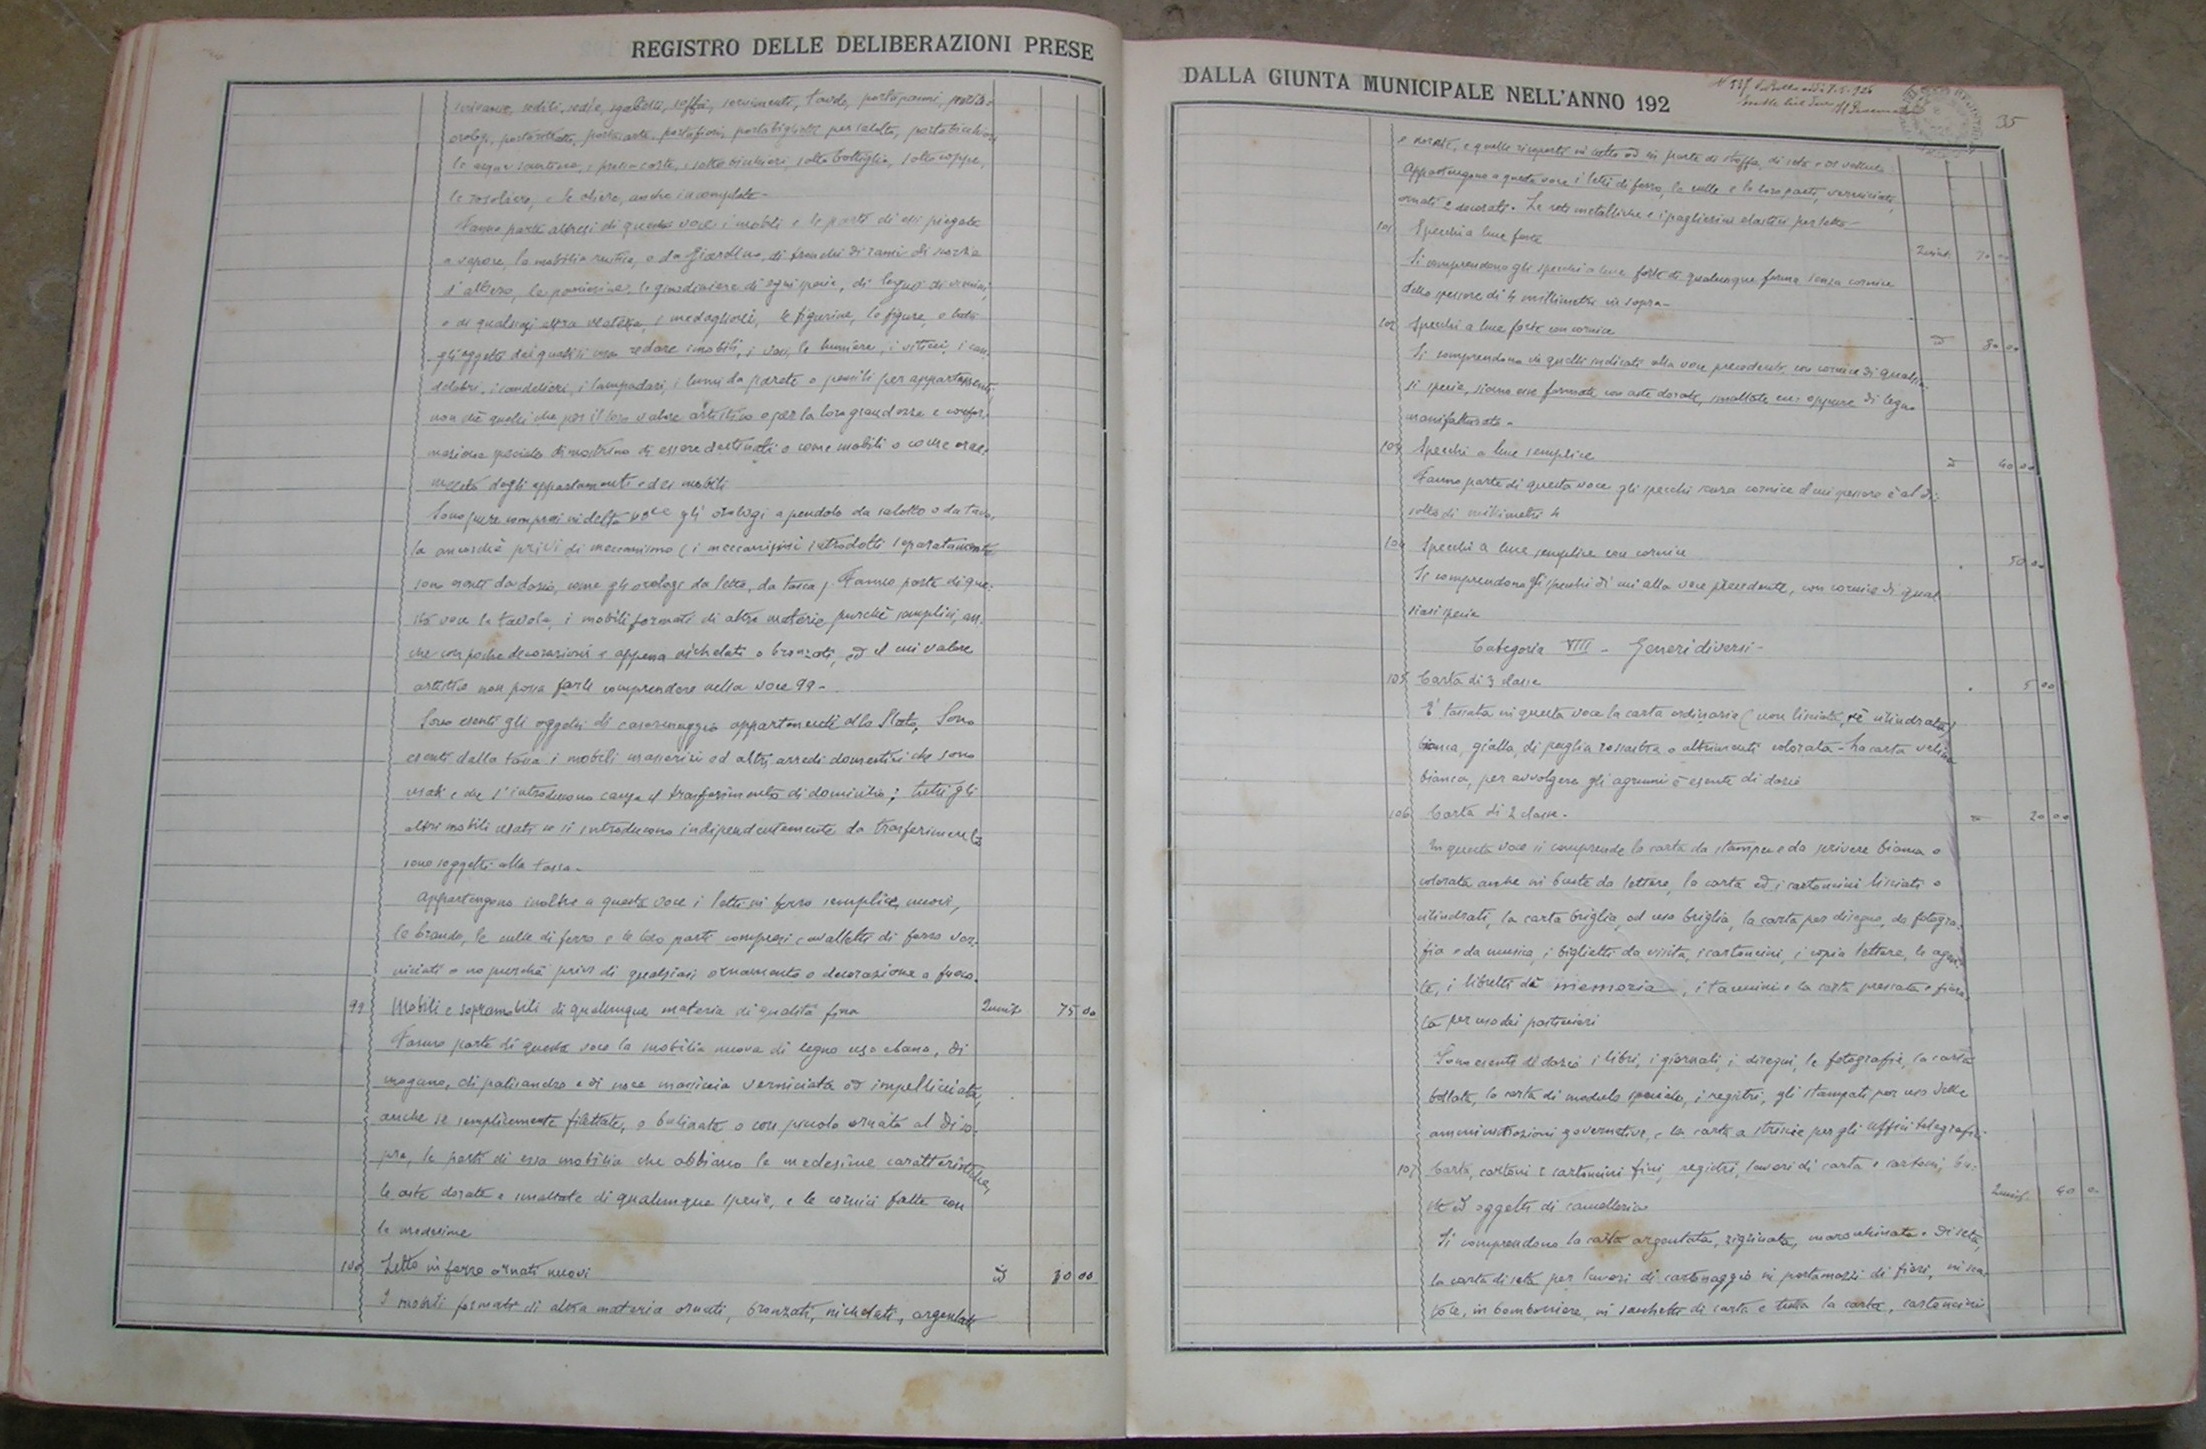 REGISTRO DELLE DELIBERAZIONI PRESE
scrivanie, sedili, sedie, sgabelli, soffà, servimenti, tavole, portapanni, porta=
orologi, portaritratti, portacarte, portafiori, portabiglietti per salotto, portabicchieri
le acqua santiere, i preme-carte, i sotto bicchieri, sotto bottiglia, sotto coppe,
le rosoliere, e le oliere, anche incomplete-
Fanno parte altresì di questa voce i mobili e le parti di essi piegate
a vapore, la mobilia rustica, o da Giardino, di tronchi di rami di scorza
d'albero, le giardiniere di ogni specie, di legno di vimini,
o di qualsiasi altra materia, i medaglioni, le figurine, le figure, e tutti
gli oggetti dei quali si usa redare i mobili, i vasi, le lumiere, i viticci, i can.
delabri, i candelieri, i lampadari, i lumi da parete o pensili per appartamenti,
non chè quelli che per il loro valore artistico o per la loro grandezza e confor.
mazione speciale dimostrino di essere destinati o come mobili o come orna.
mento degli appartamenti e dei mobili
Sono pure compresi in detta voce gli orologi a pendolo da salotto o da tavo.
la ancorchè privi di meccanismo (i meccanismi introdotti separatamente
sono esenti da dazio, come gli orologi da letto, da tasca). Fanno parte di que:
sta voce le tavole, i mobili formati di altre materie purchè semplici, an.
che con poche decorazioni e appena nichelati o bronzati, ed il cui valore
artistico non possa farli comprendere nella voce 99-
Sono esenti gli oggetti di casermaggio appartenenti allo Stato, Sono
esenti dalla tassa i mobili masserizi ed altri arredi domestici che sono
usati e che s'introducono causa il trasferimento di domicilio; tutti gli
altri mobili usati se si introducono indipendentemente da trasferimento
sono soggetti alla tassa-
Appartengono inoltre a questa voce i letti in ferro semplice, nuovi,
le brande, le culle di ferro e le loro parti compresi cavalletti di ferro ver.
niciati o no purchè privi di qualsiasi ornamento o decorazione a fuoco.
99 Mobili e sopramobili di qualunque materia di qualità fina Quint. 75 00
Fanno parte di questa voce la mobilia nuova di legno uso ebano, di
mogano, di palisandro e di noce massiccia verniciata od impellicciata,
anche se semplicemente filettate, o bulinate o con piccolo ornato al di so.
pra, le parti di essa mobilia che abbiano le medesime caratteristiche,
le aste dorate e smaltate di qualunque specie, e le cornici fatte con
le medesime
100 Letto in ferro ornati nuovi id 80 00
I mobili formati di altra materia ornati, bronzati, nichelati, argentati
DALLA GIUNTA MUNICIPALE NELL'ANNO 192
35
e dorati, e quelle ricoperti in tutto od in parte di stoffa, di seta o di velluto
Appartengono a questa voce i letti di ferro, le culle e le loro parti, verniciati,
ornati e decorati. Le reti metalliche e i pagliericci elastici per letto-
101 Specchi a luce forte Quint. 70 00
Si comprendono gli specchi a luce forte di qualunque forma senza cornice
dello spessore di 4 millimetri in sopra-
102 Specchi a luce forte con cornice id 80 00
Si comprendono in quelli indicati alla voce precedente con cornice di qualsia=
si specie, siano esse formate con aste dorate, smaltate ecc: oppure di legno
manifatturato-
103 Specchi a luce semplice id 40 00
Fanno parte di questa voce gli specchi senza cornice il cui spessore è al di:
sotto di millimetri 4
104 Specchi a luce semplice con cornice " 50 00
Si comprendono gli specchi di cui alla voce precedente, con cornice di qual
siasi specie
Categoria VIII - Generi diversi-
105 Carta di 3 classe " 5 00
E' tassata in questa voce la carta ordinaria (non lisciata, nè cilindrata)
bianca, gialla, di paglia rossastra o altrimenti colorata- La carta velina
bianca, per avvolgere gli agrumi è esente di dazio
106 Carta di 2 classe- id 20 00
In questa voce si comprende la carta da stampa e da scrivere bianca o
colorata anche in buste da lettere, la carta ed i cartoncini lisciati o
cilindrati, la carta briglia, od uso briglia, la carta per disegno, da fotogra.
fia e da musica, i biglietti da visita, i cartoncini, i copia lettere, le agen:
de, i libretti di memoria, i taccuini e la carta pressata e fiora.
ta per uso dei pasticcieri
Sono esenti di dazio i libri, i giornali, i disegni, le fotografie, la carta
bollata, la carta di modulo speciale, i registri, gli stampati per uso delle
amministrazioni governative, e la carta a striscie per gli uffici telegrafici
107 Carta, cartoni e cartoncini fini, registri, lavori di carta e cartoni, bu:
ste ed oggetti di cancelleria Quint. 40 00
Si comprendono la carta argentata, zigrinata, marocchinata e di seta,
la carta di seta per lavori di cartonaggio in portamazzi di fiori, in sca.
tole, in bomboniere, in sacchetti di carta e tutta la carta, cartoncini